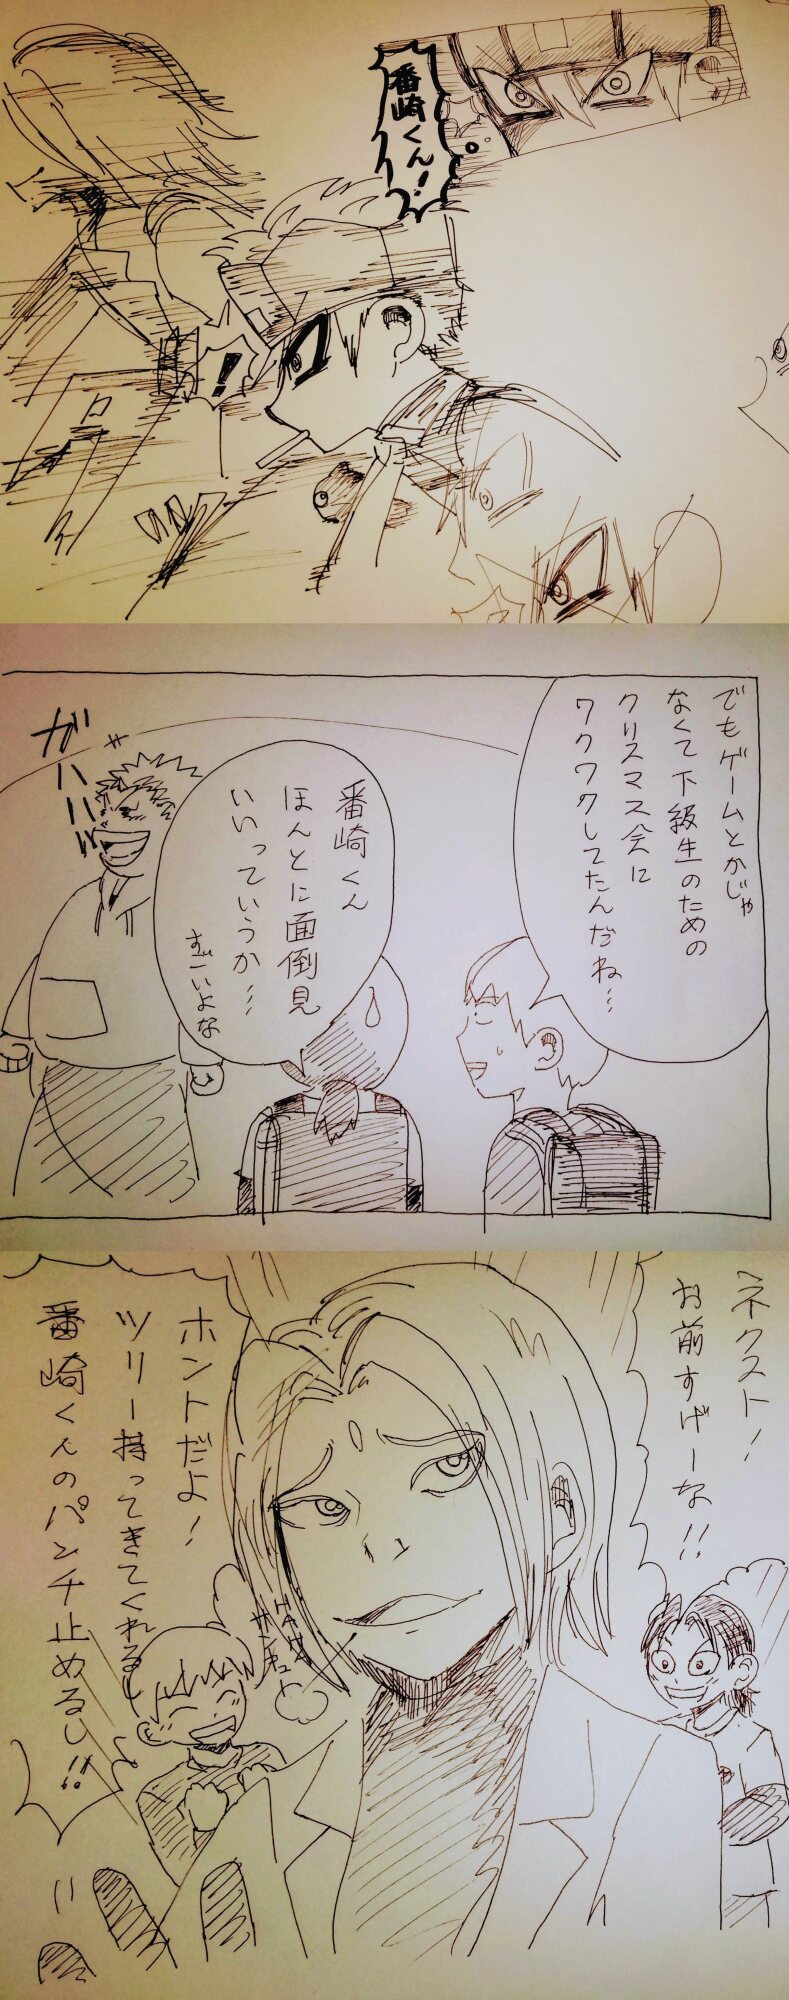 番崎くん!
!
でもゲームとかじゃ
なくて下級生のための
クリスマス会に
ワクワクしてたんだね…
番崎くん
ほんとに面倒見
いいっていうか…
すごいよな
ガハハハ
ネクスト!
お前すげーな!!
ホントだよ!
ツリー持ってきてくれるし
番崎くんのパンチ止めるし!!
HAHA
サンキュ